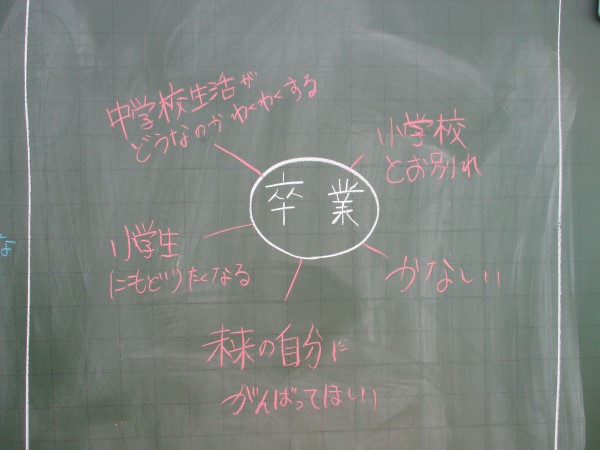 中学校生活が
どうなのか わくわくする
小学校
とお別れ
卒業
小学生
にもどりたくなる
かなしい
未来の自分に
がんばってほしい